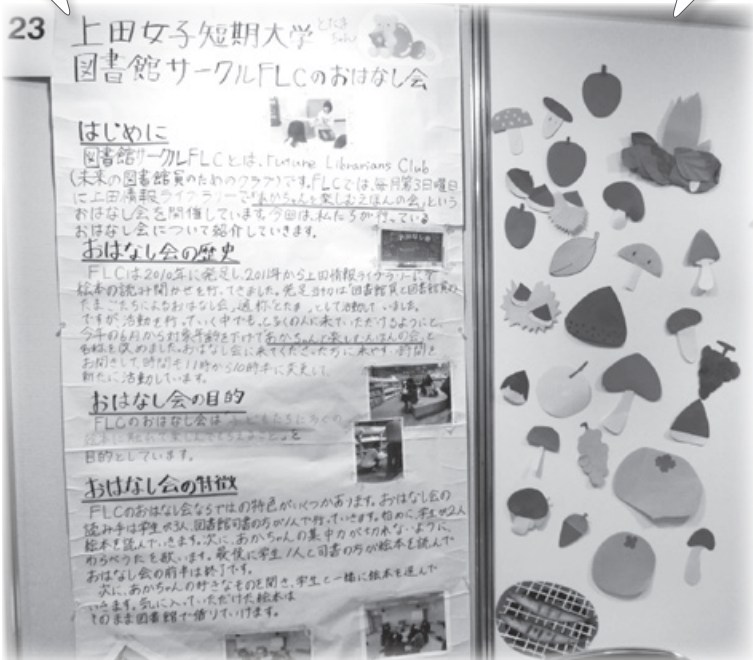 23
上田女子短期大学
図書館サークルFLCのおはなし会
はじめに
図書館サークルFLCとは、Future Librarians Club
(未来の図書館員のためのクラブ)です。FLCでは、毎月第3日曜日
に上田情報ライブラリーで「あかちゃんと楽しむえほんの会」という
おはなし会を開催しています。今回は、私たちが行っている
おはなし会について紹介していきます。
おはなし会の歴史
FLCは2010年に発足し、2011年から上田情報ライブラリーにて
絵本の読み聞かせを行ってきました。発足当初は「図書館員と図書館員の
たまごたちによるおはなし会」通称"とたま"として活動していました。
ですが、活動を行っていく中でも、もっと多くの人に来ていただけるようにと、
今年の6月から対象年齢を下げて「あかちゃんと楽しむえほんの会」と
名称を改めました。おはなし会に来てくださった方に来やすい時間を
お聞きして、時間も11時から10時半に変更して、
新たに活動しています。
おはなし会の目的
FLCのおはなし会は
目的としています。
おはなし会の特徴
FLCのおはなし会ならではの特色がいくつかあります。おはなし会の
読み手は学生が3人、図書館司書の方が1人で行っていきます。始めに、学生が2人
絵本を読んでいきます。次に、あかちゃんの集中力が切れないように、
わらべうたを歌います。最後に学生1人と司書の方が絵本を読んで
おはなし会の前半は終了です。
次に、あかちゃんの好きなものを聞き、学生と一緒に絵本を選んで
いきます。気に入っていただけた絵本は
そのまま図書館で借りていけます。